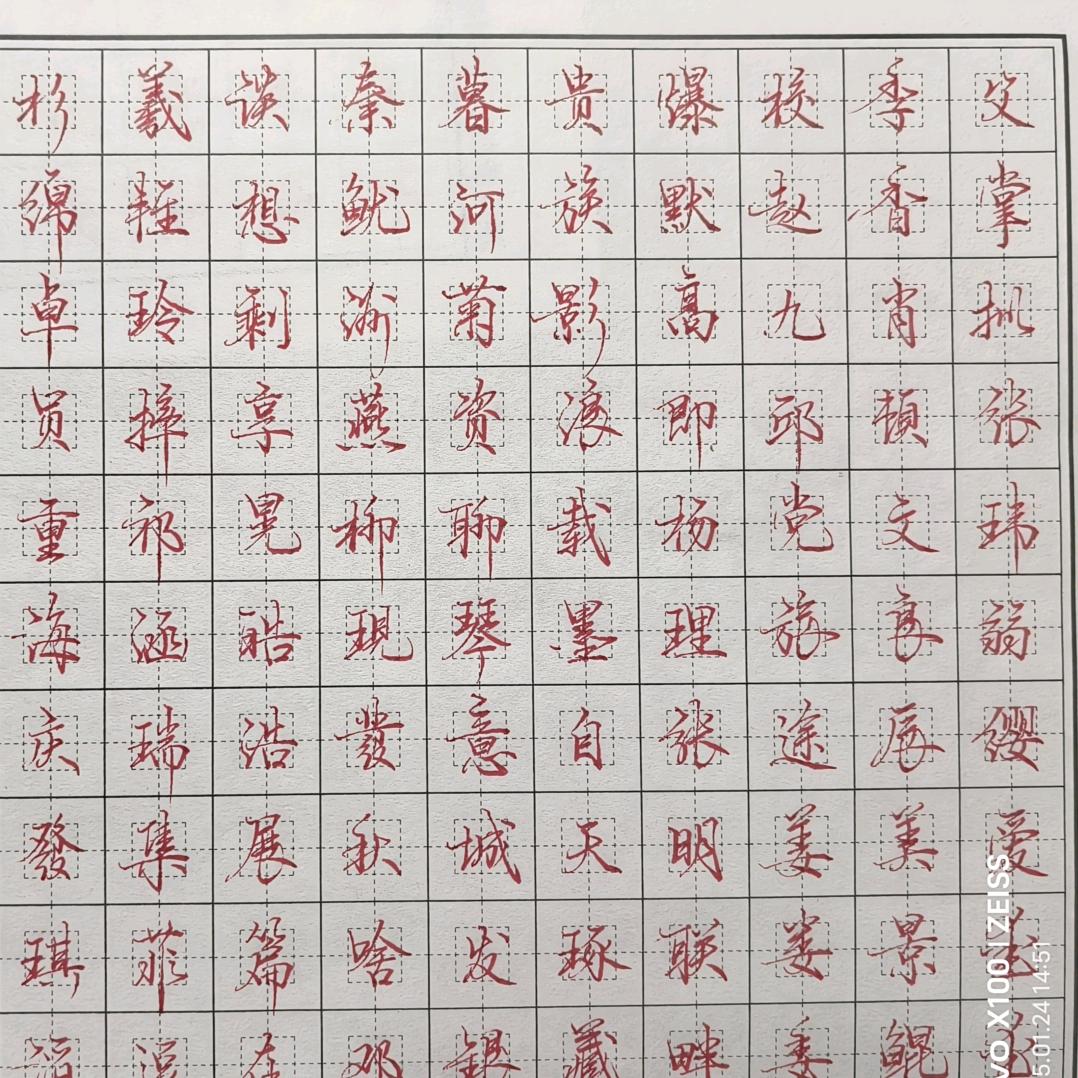 杉羲谈秦暮贵爆校季父
绵想鱿河族默赵香掌
卓玲剩渐菊影高九肖
员摔享燕资即邱顿张
重祁晃柳聊载杨党文玮
海涵皓现琴墨理旅良翁
庆瑞浩發意自张途展缨
發集展秋城天明姜美爱
琪菲篇啥发琢联娄景
在邓银藏畔季鲲
VO X100 | ZEISS
5.01.24 14:51